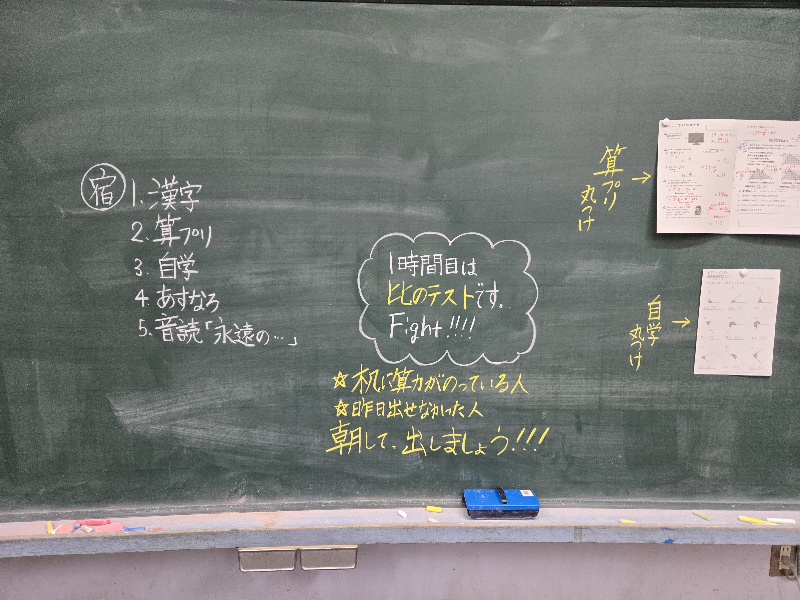 宿
1. 漢字
2. 算プリ
3. 自学
4. あすなろ
5. 音読「永遠の…」
1時間目は
比のテストです。
Fight!!!!
☆ 机に算力がのっている人
☆ 昨日出せなかった人
朝して、出しましょう!!!
算プリ →
丸つけ
自学 →
丸つけ